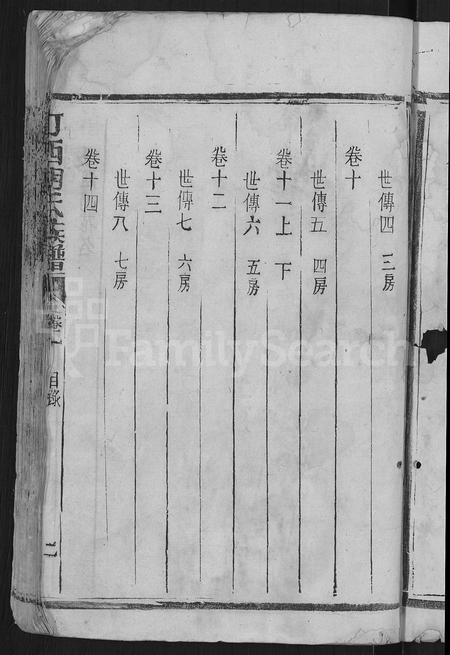 世傳四 三房
卷十
世傳五 四房
卷十一上 下
世傳六 五房
卷十二
世傳七 六房
卷十三
世傳八 七房
卷十四
族譜 卷一 目錄 二
FamilySearch